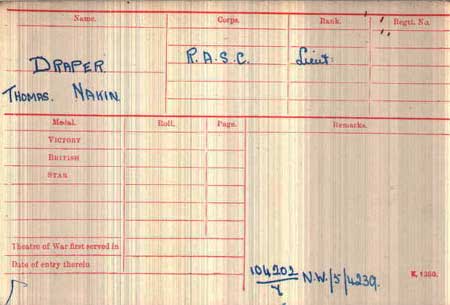 Name. Corps. Rank. Regtl. No.
DRAPER R.A.S.C. Lieut.
THOMAS. NAKIN
Medal. Roll. Page. Remarks.
VICTORY
BRITISH
STAR
Theatre of War first served in
Date of entry therein
104202/Y N.W/5/4239. K. 1380.